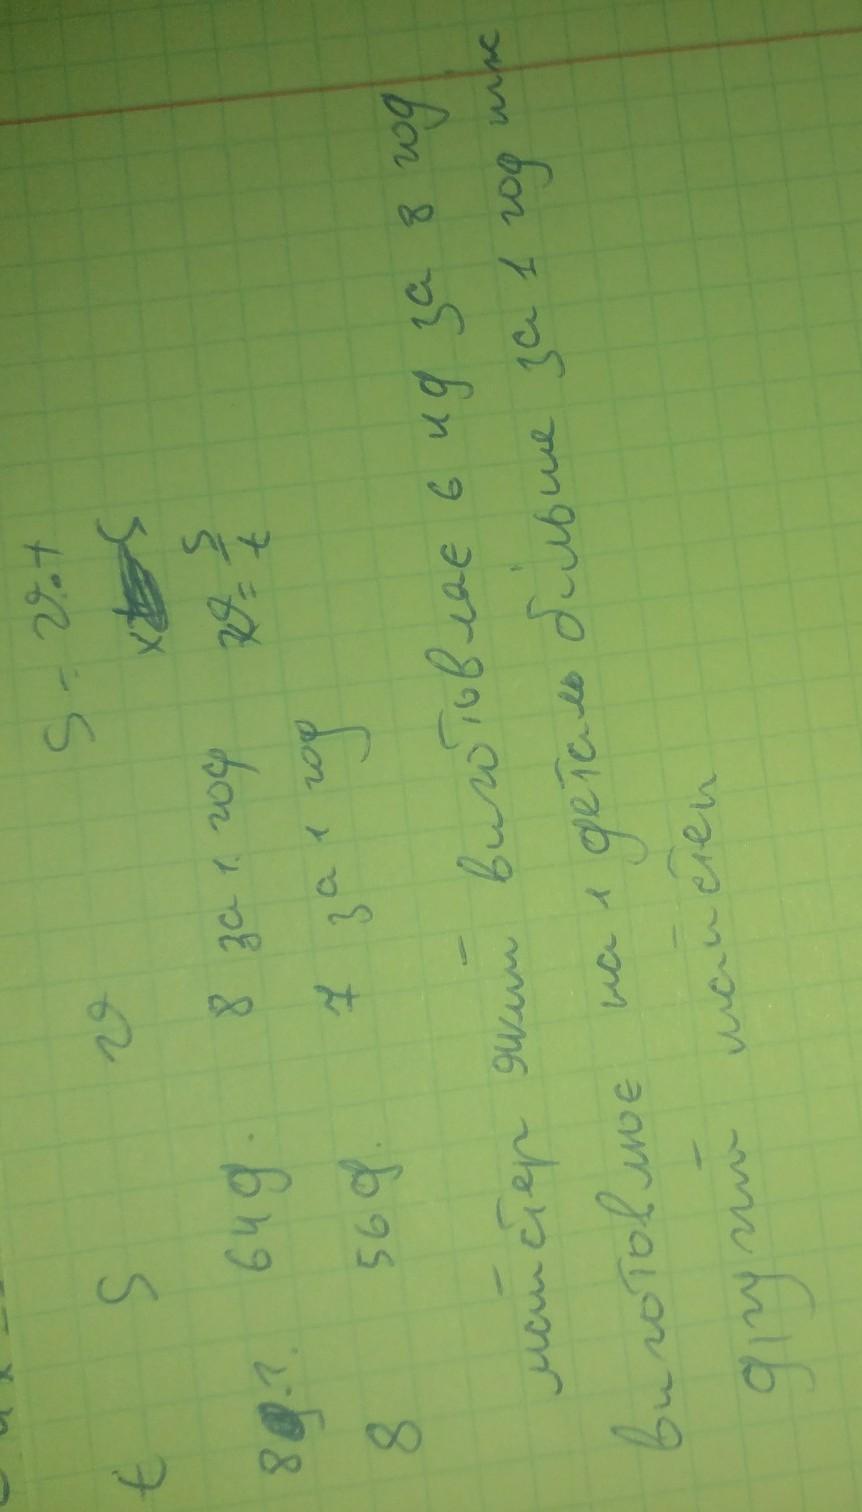 t S v S = v·t
8 г. 64 д. 8 за 1 год v = S/t
8 56 д. 7 за 1 год
майстер який виготовлає 6 чд за 8 год
виготовлює на 1 деталь більше за 1 год ніж
другий майстер